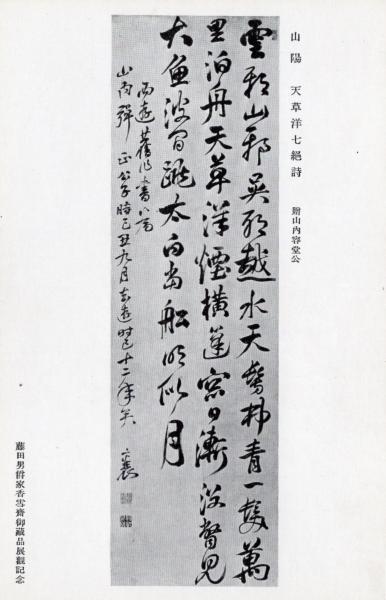 山陽 天草洋七絶詩 贈山内容堂公
雲耶山耶吳耶越水天髣髴青一髮萬
里泊舟天草洋煙橫篷窓日漸沒瞥見
大魚波間跳太白當船明似月
西遊舊作書以為
山内 正公子時己丑九月去遊時已十二年矣 襄
藤田男爵家香雪齋御藏品展觀記念